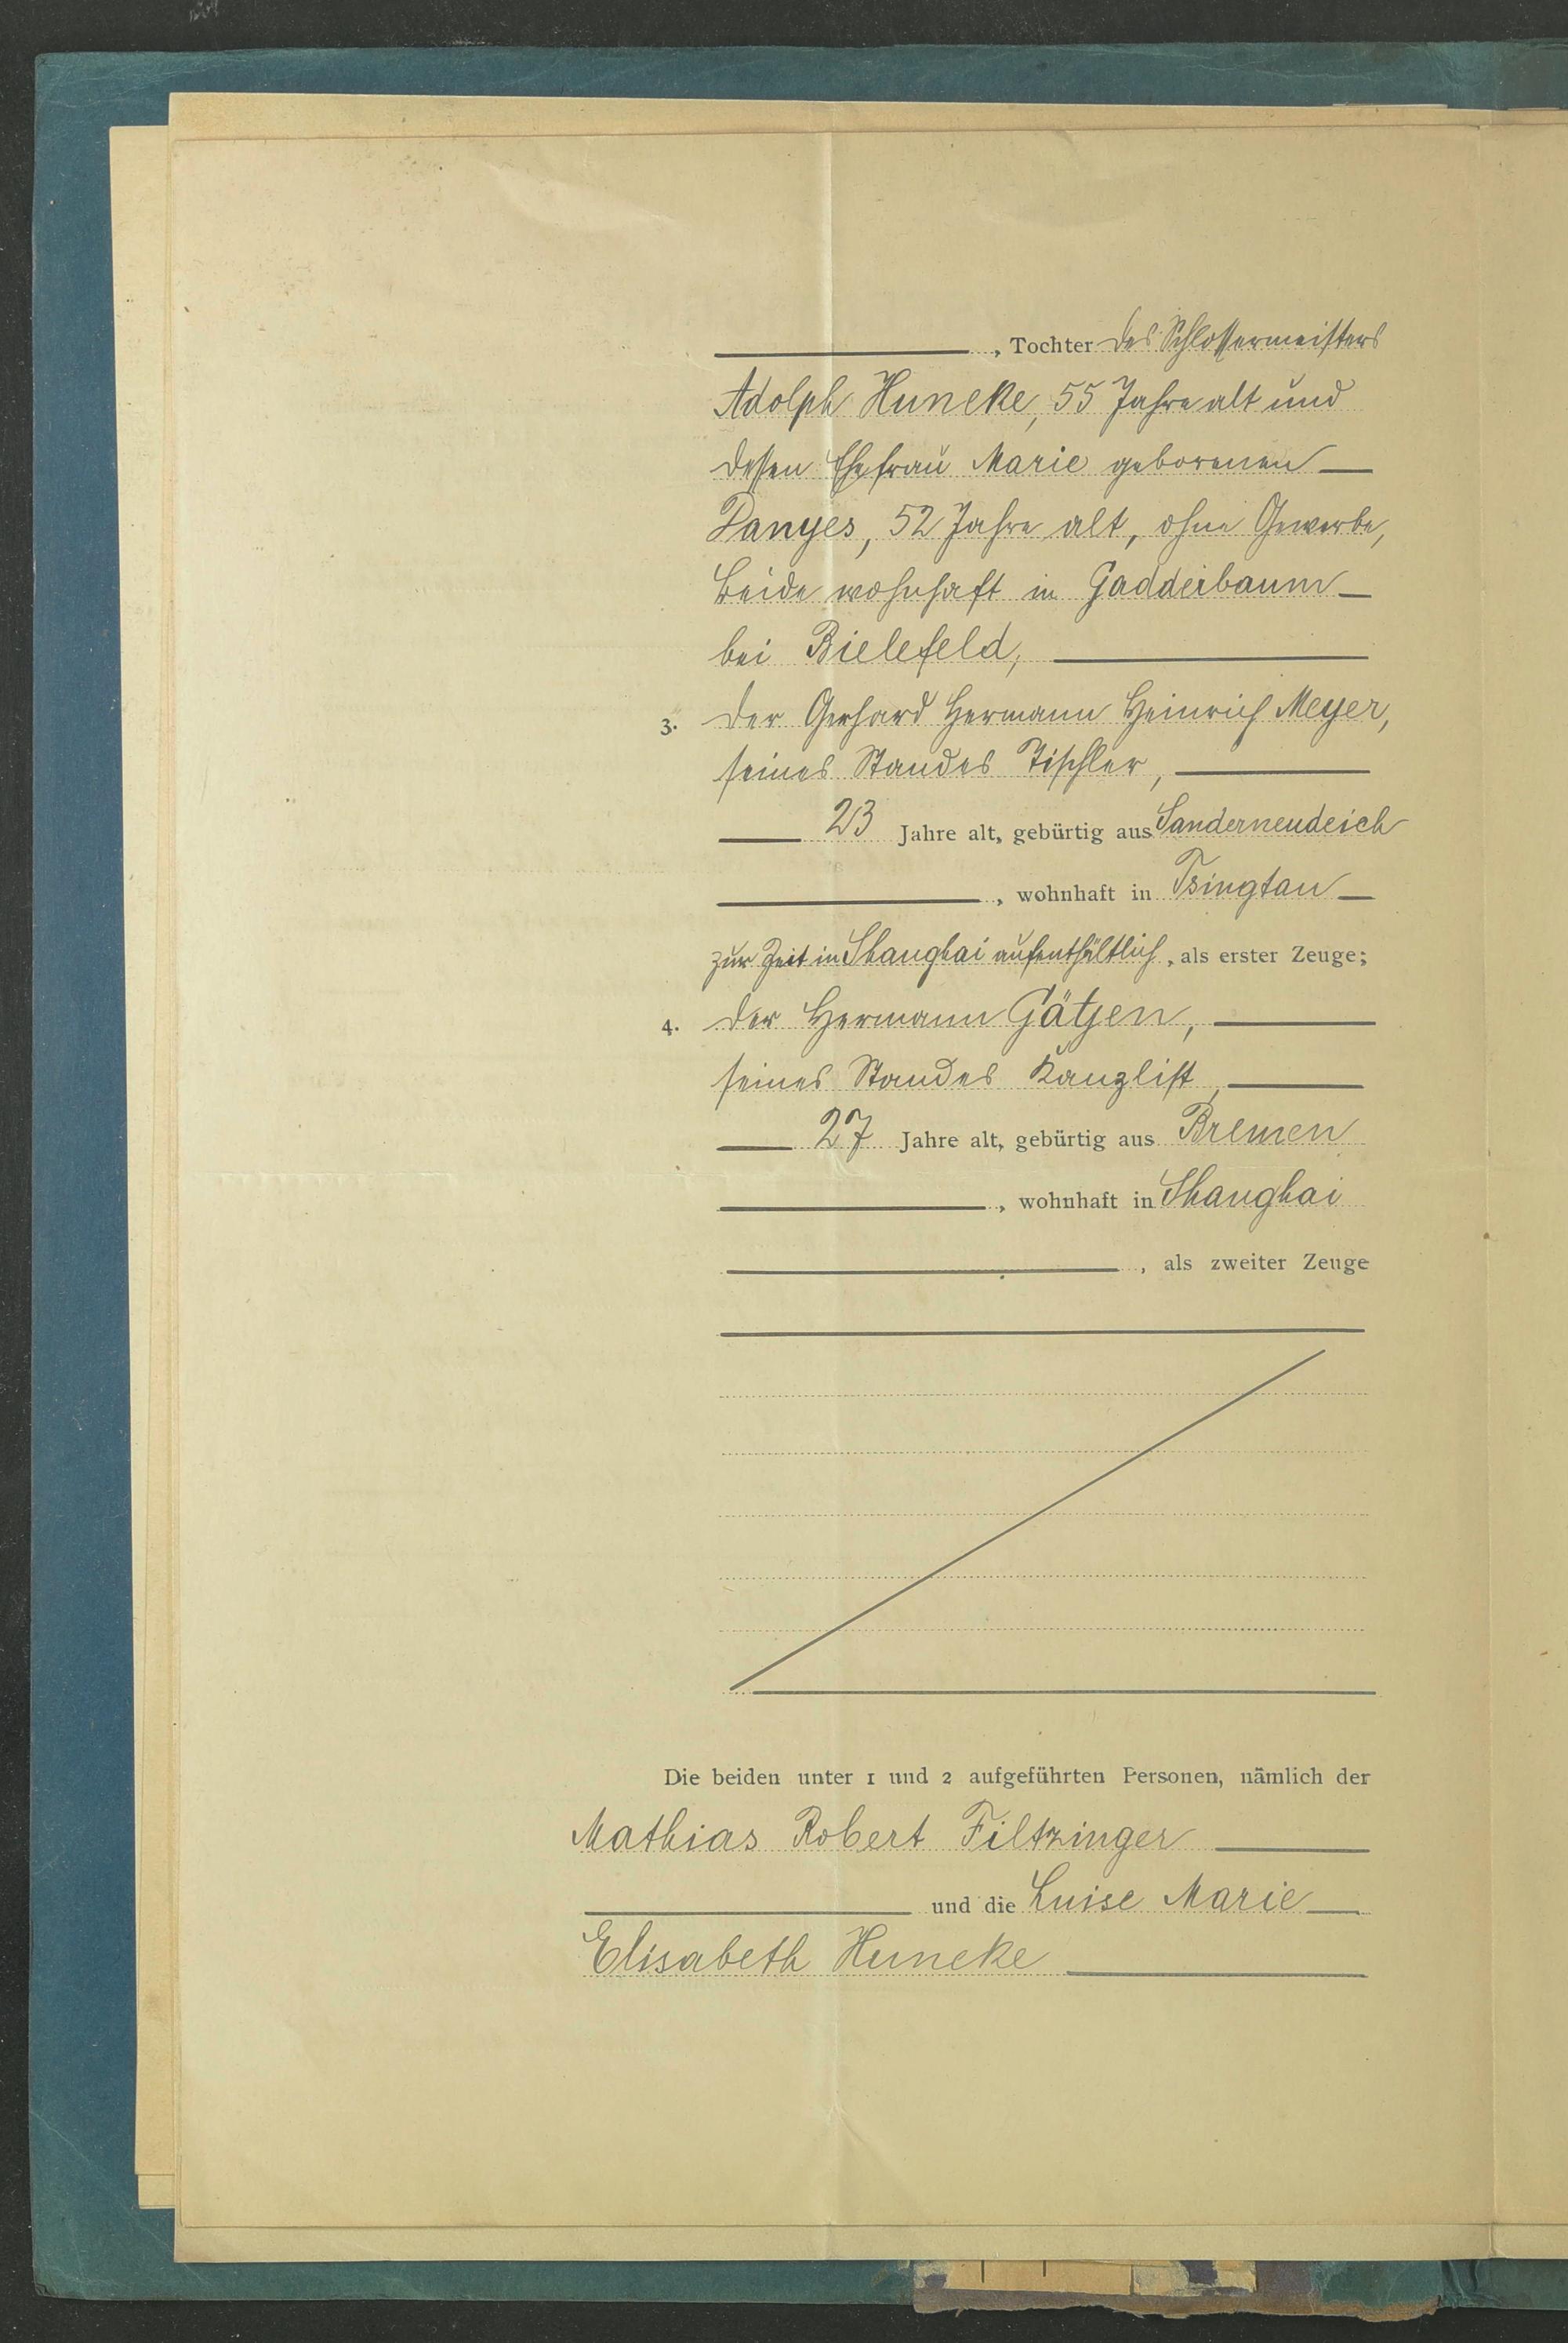 , Tochter des Schlossermeisters
Adolph Huneke, 55 Jahre alt und
dessen Ehefrau Marie geborenen
Danyes, 52 Jahre alt, ohne Gewerbe,
beide wohnhaft in Gadderbaum
bei Bielefeld,
3. der Gerhard Hermann Heinrich Meyer,
seines Standes Tischler,
23 Jahre alt, gebürtig aus Sanderneudeich
, wohnhaft in Tsingtau
zur Zeit in Shanghai aufenthältlich, als erster Zeuge;
4. der Hermann Gätjen,
seines Standes Kanzlist,
27 Jahre alt, gebürtig aus Bremen
, wohnhaft in Shanghai
, als zweiter Zeuge
Die beiden unter 1 und 2 aufgeführten Personen, nämlich der
Mathias Robert Filtzinger
und die Luise Marie
Elisabeth Huneke